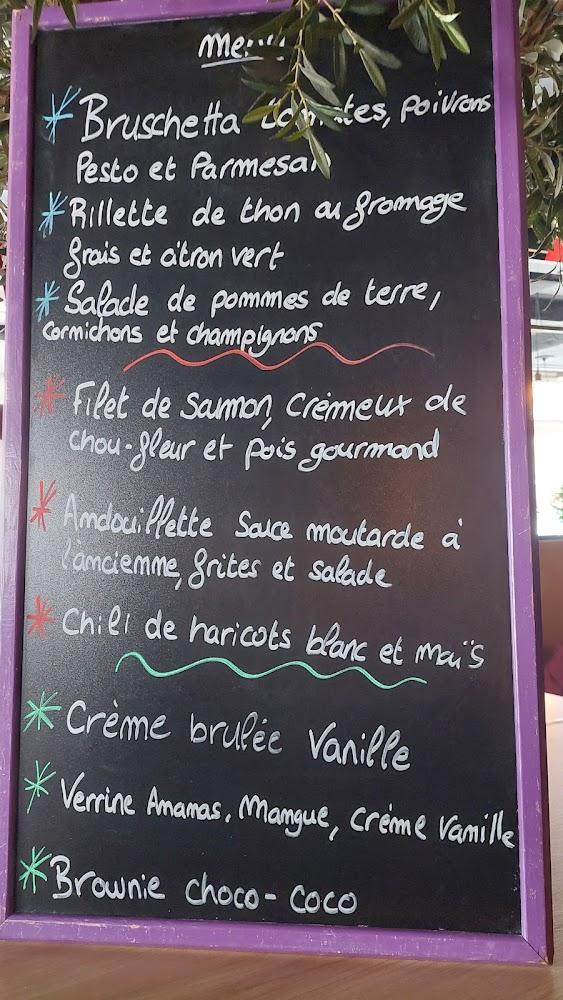 Menu
Bruschetta tomates, poivrons
Pesto et Parmesan
Rillette de thon au fromage
frais et citron vert
Salade de pommes de terre,
cornichons et champignons
Filet de saumon, Crèmeux de
chou-fleur et pois gourmand
Andouillette Sauce moutarde à
l'ancienne, frites et salade
Chili de haricots blanc et maïs
Crème brulée Vanille
Verrine Ananas, Mangue, crème Vanille
Brownie choco-coco